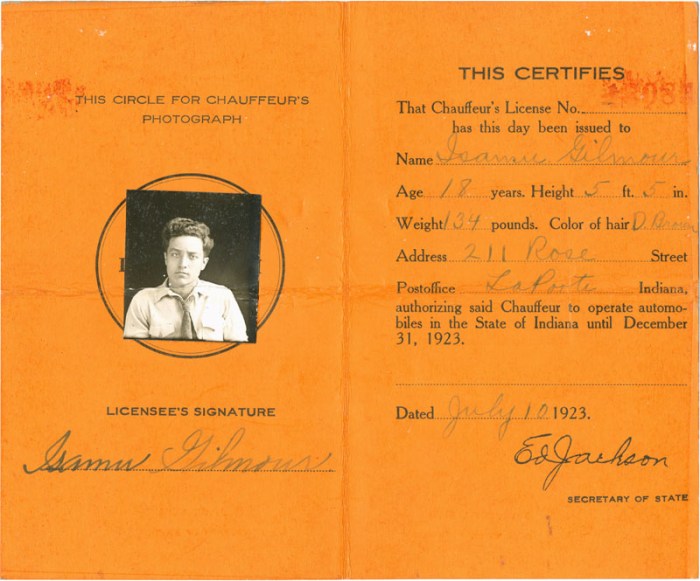 THIS CIRCLE FOR CHAUFFEUR'S
PHOTOGRAPH
LICENSEE'S SIGNATURE
Isamu Gilmour.
THIS CERTIFIES
That Chauffeur's License No.
has this day been issued to
Name Isamu Gilmour
Age 18 years. Height 5 ft. 5 in.
Weight 134 pounds. Color of hair D. Brown
Address 211 Rose Street
Postoffice LaPorte Indiana,
authorizing said Chauffeur to operate automo-
biles in the State of Indiana until December
31, 1923.
Dated July 10 1923.
Ed Jackson
SECRETARY OF STATE